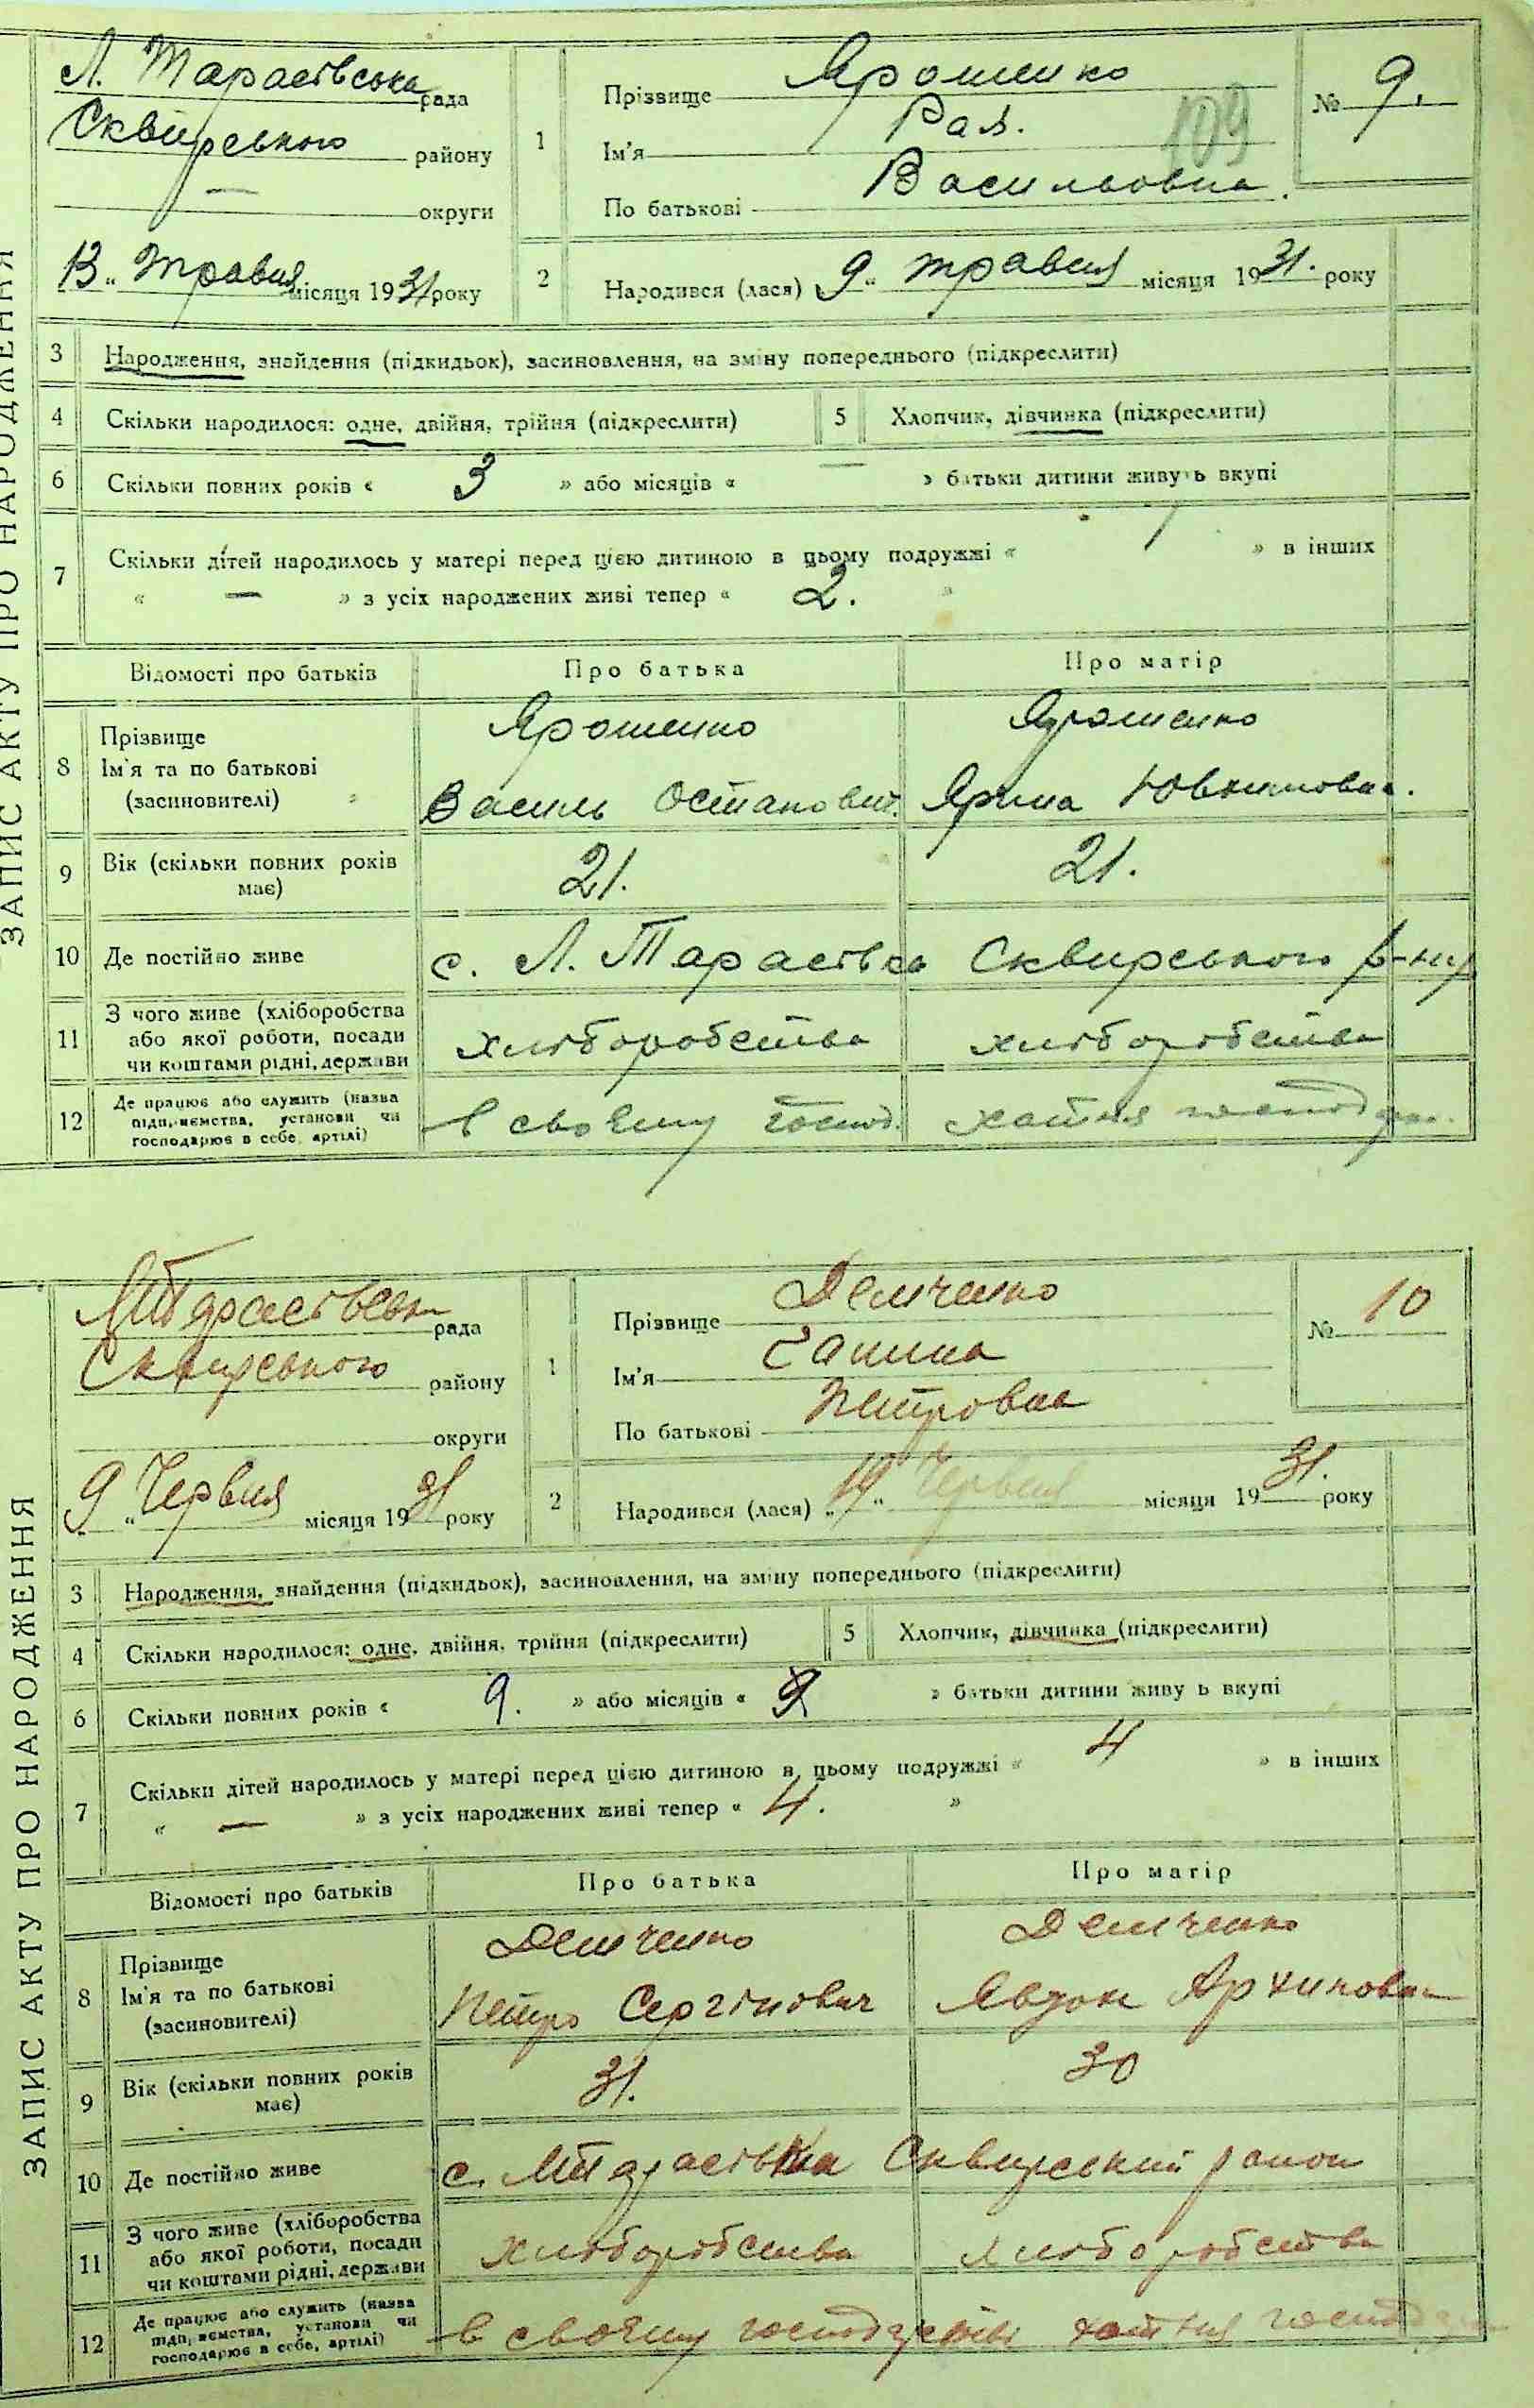 Л. Тарасівська рада
Сквирського району
— округи
13 „ травня місяця 1931 року
1
Прізвище Ярошенко
Ім'я Рая.
По батькові Васильовна.
109
№ 9.
2
Народився (лася) „ 9 „ травня місяця 1931. року
ЗАПИС АКТУ ПРО НАРОДЖЕННЯ
3 Народження, знайдення (підкидьок), засиновлення, на зміну попереднього (підкреслити)
4 Скільки народилося: одне, двійня, трійня (підкреслити) 5 Хлопчик, дівчинка (підкреслити)
6 Скільки повних років « 3 » або місяців « — » батьки дитини живуть вкупі
7 Скільки дітей народилось у матері перед цією дитиною в цьому подружжі « 1 » в інших
« — » з усіх народжених живі тепер « 2. »
Відомості про батьків Про батька Про матір
8 Прізвище Ярошенко Ярошенко
Ім'я та по батькові
(засиновителі) Василь Остапович. Ярина Ювхимовна.
9 Вік (скільки повних років має) 21. 21.
10 Де постійно живе с. Л. Тарасівка Сквирського р-ну
11 З чого живе (хліборобства
або якої роботи, посади
чи коштами рідні, держави хліборобства хліборобства
12 Де працює або служить (назва
підприємства, установи чи
господарює в себе, артілі) в своєму господ. хатня господар.
ЗАПИС АКТУ ПРО НАРОДЖЕННЯ
рада
Сквирського району
округи
9 „ Червня місяця 1931 року
1
Прізвище Демченко
Ім'я Ганна
По батькові Петровна
№ 10
2
Народився (лася) „ „ Червня місяця 1931. року
3 Народження, знайдення (підкидьок), засиновлення, на зміну попереднього (підкреслити)
4 Скільки народилося: одне, двійня, трійня (підкреслити) 5 Хлопчик, дівчинка (підкреслити)
6 Скільки повних років « 9. » або місяців « » батьки дитини живу ь вкупі
7 Скільки дітей народилось у матері перед цією дитиною в цьому подружжі « 4 » в інших
« — » з усіх народжених живі тепер « 4. »
Відомості про батьків Про батька Про матір
8 Прізвище Демченко Демченко
Ім'я та по батькові
(засиновителі) Петро Сергійович Явдоха Архиповна
9 Вік (скільки повних років має) 31. 30
10 Де постійно живе с. Сквирський район
11 З чого живе (хліборобства
або якої роботи, посади
чи коштами рідні, держави хліборобства хліборобства
12 Де працює або служить (назва
підприємства, установи чи
господарює в себе, артілі) в своєму господарстві хатня